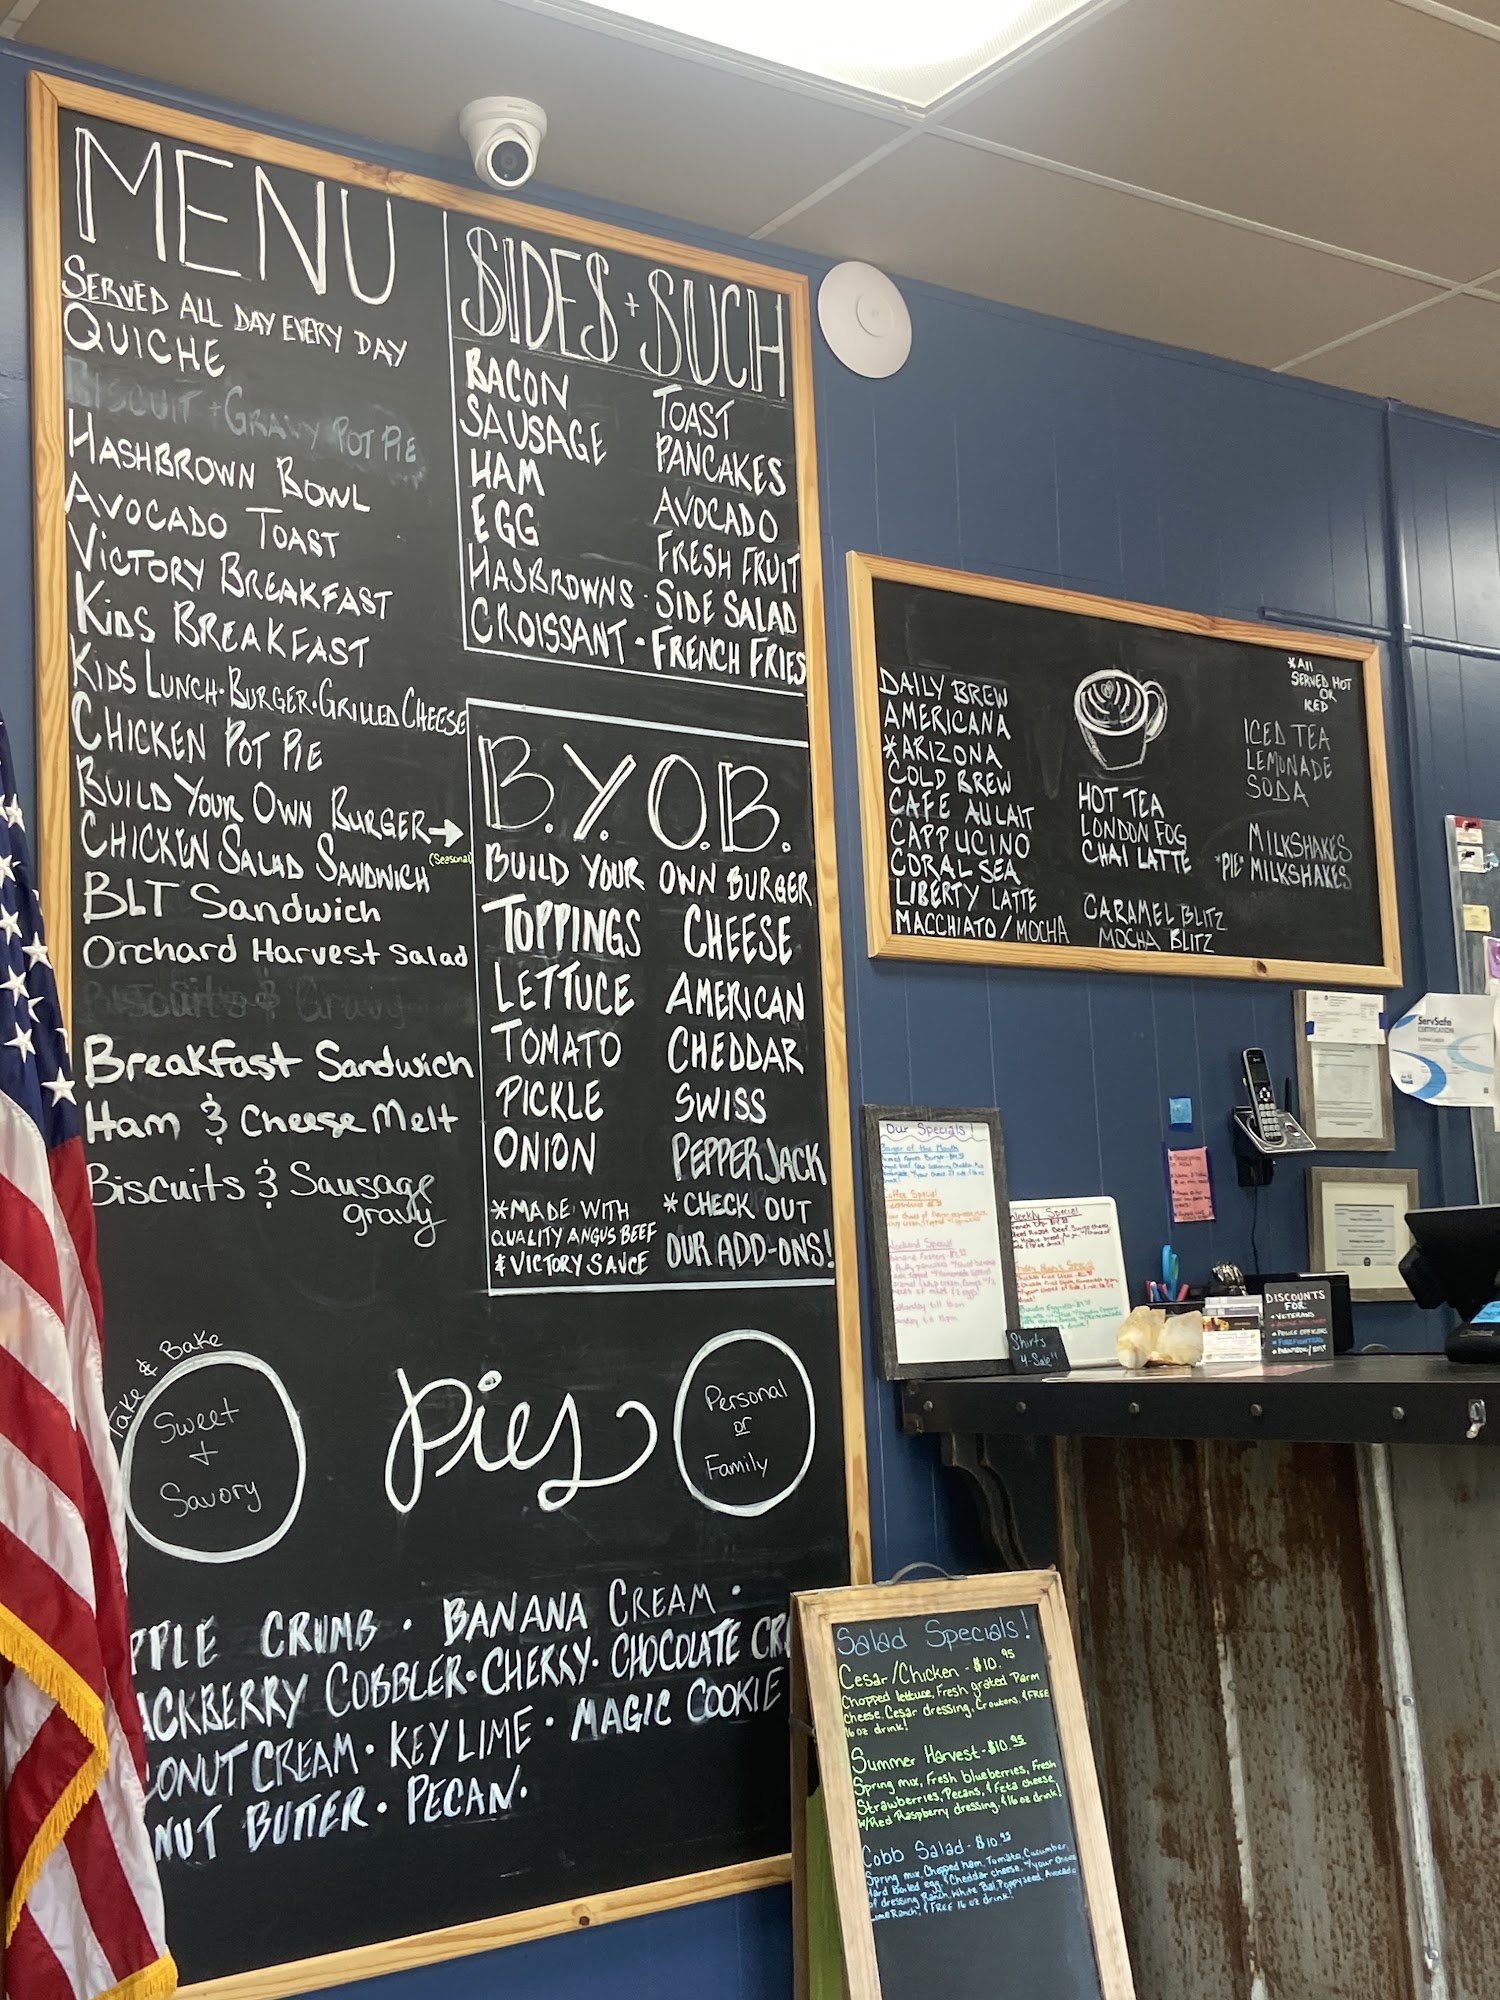 MENU
SERVED ALL DAY EVERY DAY
QUICHE
BISCUIT + GRAVY POT PIE
HASHBROWN BOWL
AVOCADO TOAST
VICTORY BREAKFAST
KIDS BREAKFAST
KIDS LUNCH · BURGER · GRILLED CHEESE
CHICKEN POT PIE
BUILD YOUR OWN BURGER →
CHICKEN SALAD SANDWICH (Seasonal)
BLT Sandwich
Orchard Harvest Salad
Biscuits & Gravy
Breakfast Sandwich
Ham & Cheese Melt
Biscuits & Sausage
gravy
SIDES + SUCH
BACON
SAUSAGE
HAM
EGG
HASBROWNS ·
CROISSANT ·
TOAST
PANCAKES
AVOCADO
FRESH FRUIT
SIDE SALAD
FRENCH FRIES
B.Y.O.B.
BUILD YOUR OWN BURGER
TOPPINGS
LETTUCE
TOMATO
PICKLE
ONION
*MADE WITH
QUALITY ANGUS BEEF
& VICTORY SAUCE
CHEESE
AMERICAN
CHEDDAR
SWISS
PEPPERJACK
*CHECK OUT
OUR ADD-ONS!
Take & Bake
Sweet
+
Savory
Pies
Personal
or
Family
PPLE CRUMB · BANANA CREAM ·
ACKBERRY COBBLER · CHERRY · CHOCOLATE CR
ONUT CREAM · KEY LIME · MAGIC COOKIE
NUT BUTTER · PECAN.
DAILY BREW
AMERICANA
*ARIZONA
COLD BREW
CAFÉ AU LAIT
CAPPUCINO
CORAL SEA
LIBERTY LATTE
MACCHIATO / MOCHA
HOT TEA
LONDON FOG
CHAI LATTE
CARAMEL BLITZ
MOCHA BLITZ
*All
SERVED HOT
OR
ICED
ICED TEA
LEMONADE
SODA
MILKSHAKES
"PIE" MILKSHAKES
ServSafe
CERTIFICATION
Our Specials!
Burger of the Month
Coffee Special
Weekend Special
Weekly Special
Shirts
4-Sale!!
DISCOUNTS
FOR:
VETERANS
POLICE OFFICERS
FIREFIGHTERS
PARAMEDIC/EMT
Salad Specials!
Cesar/Chicken - $10.95
Chopped lettuce, Fresh grated Parm
Cheese, Cesar dressing, Croutons, & FREE
16 oz drink!
Summer Harvest - $10.95
Spring mix, Fresh blueberries, Fresh
Strawberries, Pecans, & Feta cheese
w/Red Raspberry dressing. & 16 oz drink!
Cobb Salad - $10.95
Spring mix, Chopped ham, Tomato, Cucumber,
Hard boiled egg, & Cheddar cheese. w/your choice
of dressing Ranch, White Bal, Poppyseed, Avocado
Lime Ranch, & FREE 16 oz drink!